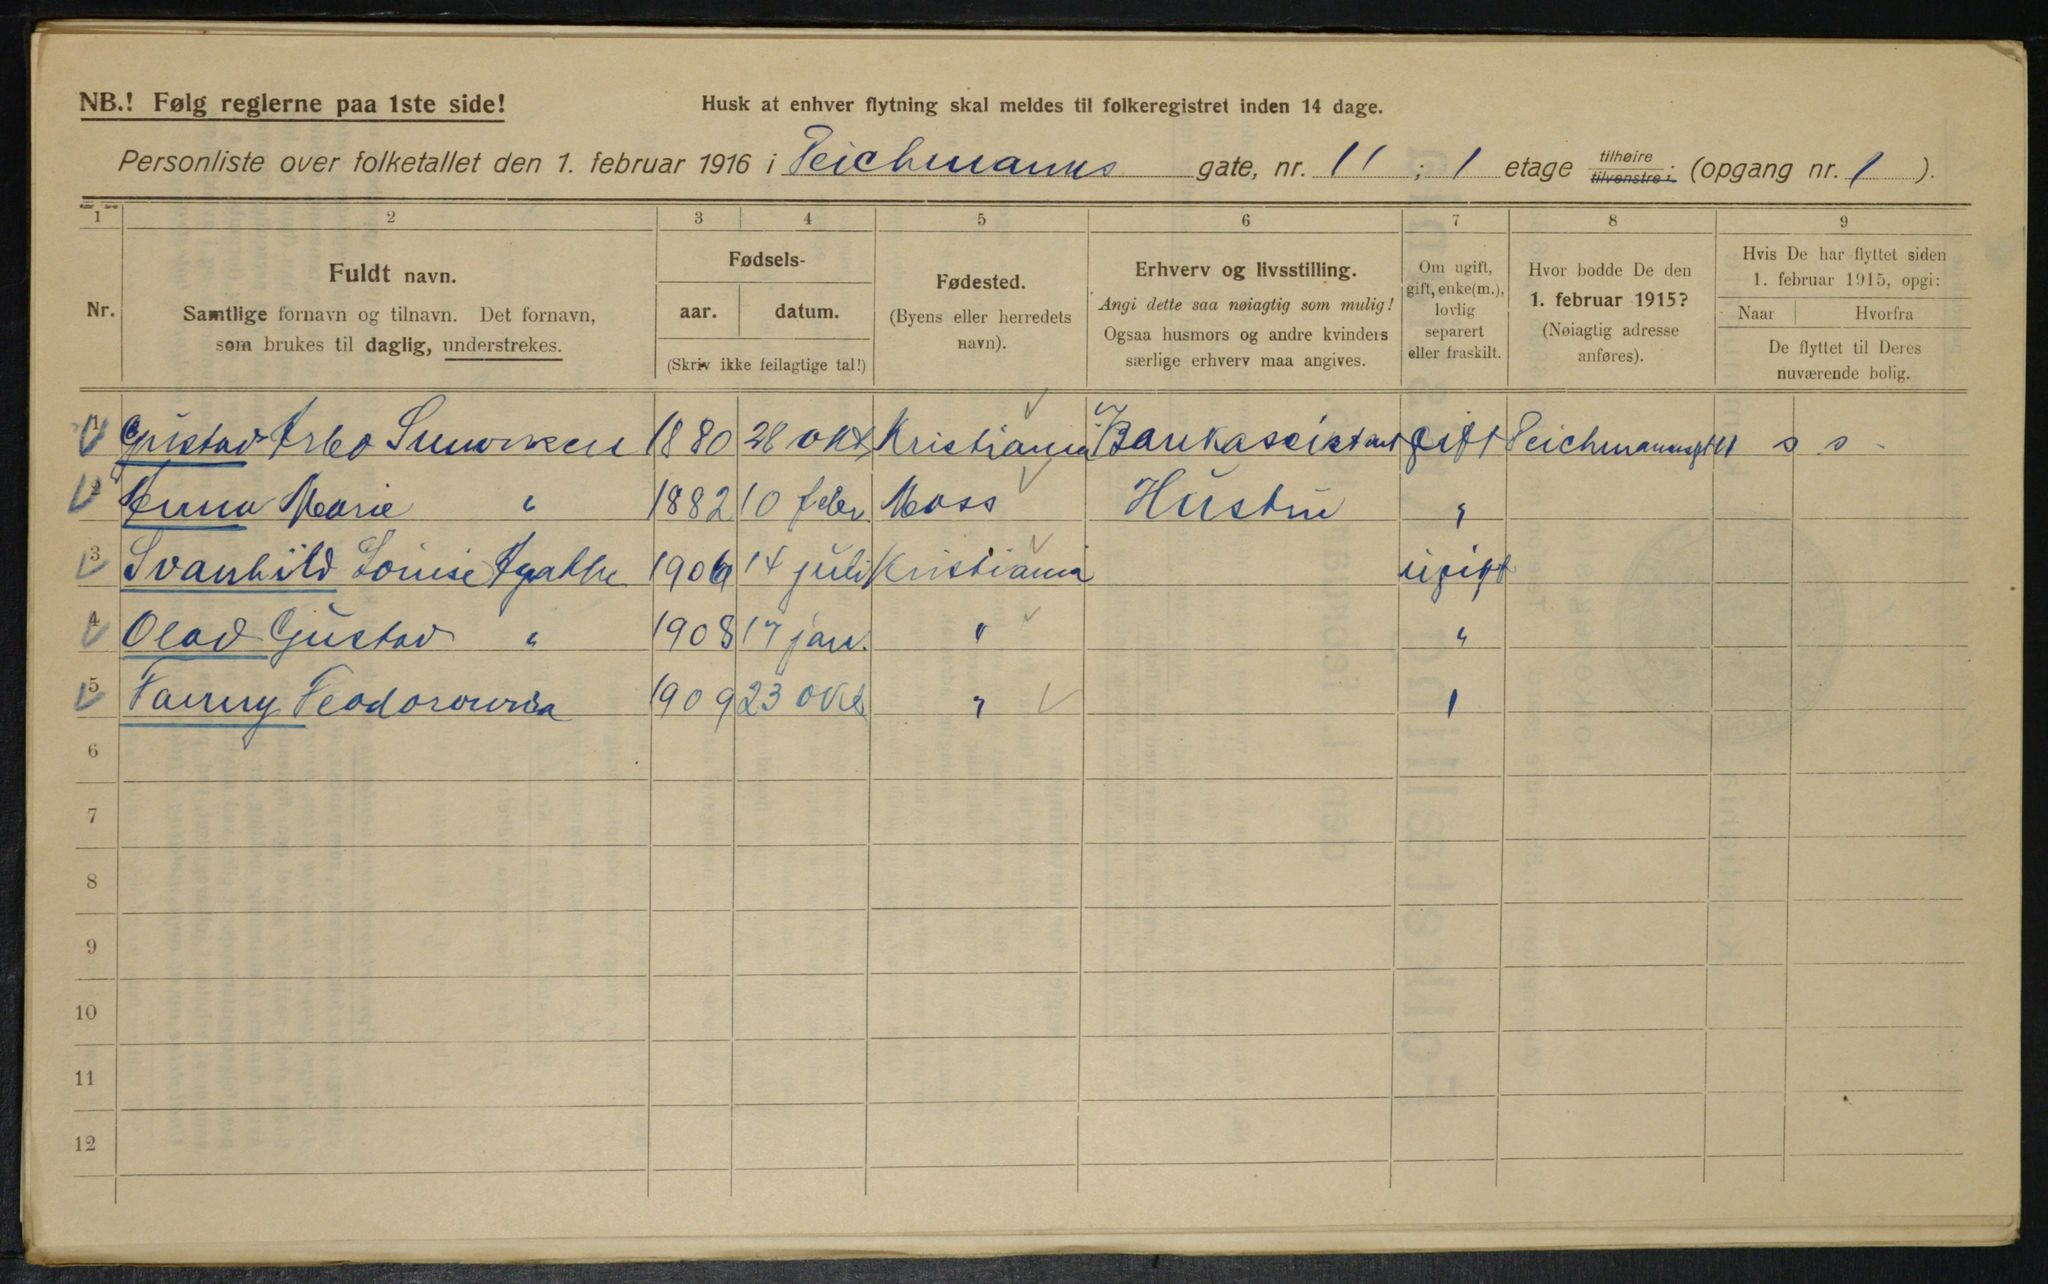 NB.! Følg reglerne paa 1ste side!
Husk at enhver flytning skal meldes til folkeregistret inden 14 dage.
Personliste over folketallet den 1. februar 1916 i Teichmanns gate, nr. 11 ; 1 etage tilhøire tilvenstre (opgang nr. 1 ).
1 2 3 4 5 6 7 8 9
Nr.
Fuldt navn.
Samtlige fornavn og tilnavn. Det fornavn,
som brukes til daglig, understrekes.
Fødsels-
aar. datum.
(Skriv ikke feilagtige tal!)
Fødested.
(Byens eller herredets
navn).
Erhverv og livsstilling.
Angi dette saa nøiagtig som mulig!
Ogsaa husmors og andre kvinders
særlige erhverv maa angives.
Om ugift,
gift, enke(m.),
lovlig
separert
eller fraskilt.
Hvor bodde De den
1. februar 1915?
(Nøiagtig adresse
anføres).
Hvis De har flyttet siden
1. februar 1915, opgi:
Naar Hvorfra
De flyttet til Deres
nuværende bolig.
1 Gustav Arbo 1880 28 okt Kristiania Bankassistent gift Teichmannsgt 11 s s
2 Anna Marie " 1882 10 febr. Moss Hustru "
3 Svanhild Louise Agathe 1906 14 juli Kristiania ugift
4 Olav Gustav " 1908 17 jan. " "
5 Fanny 1909 23 okt " "
6
7
8
9
10
11
12